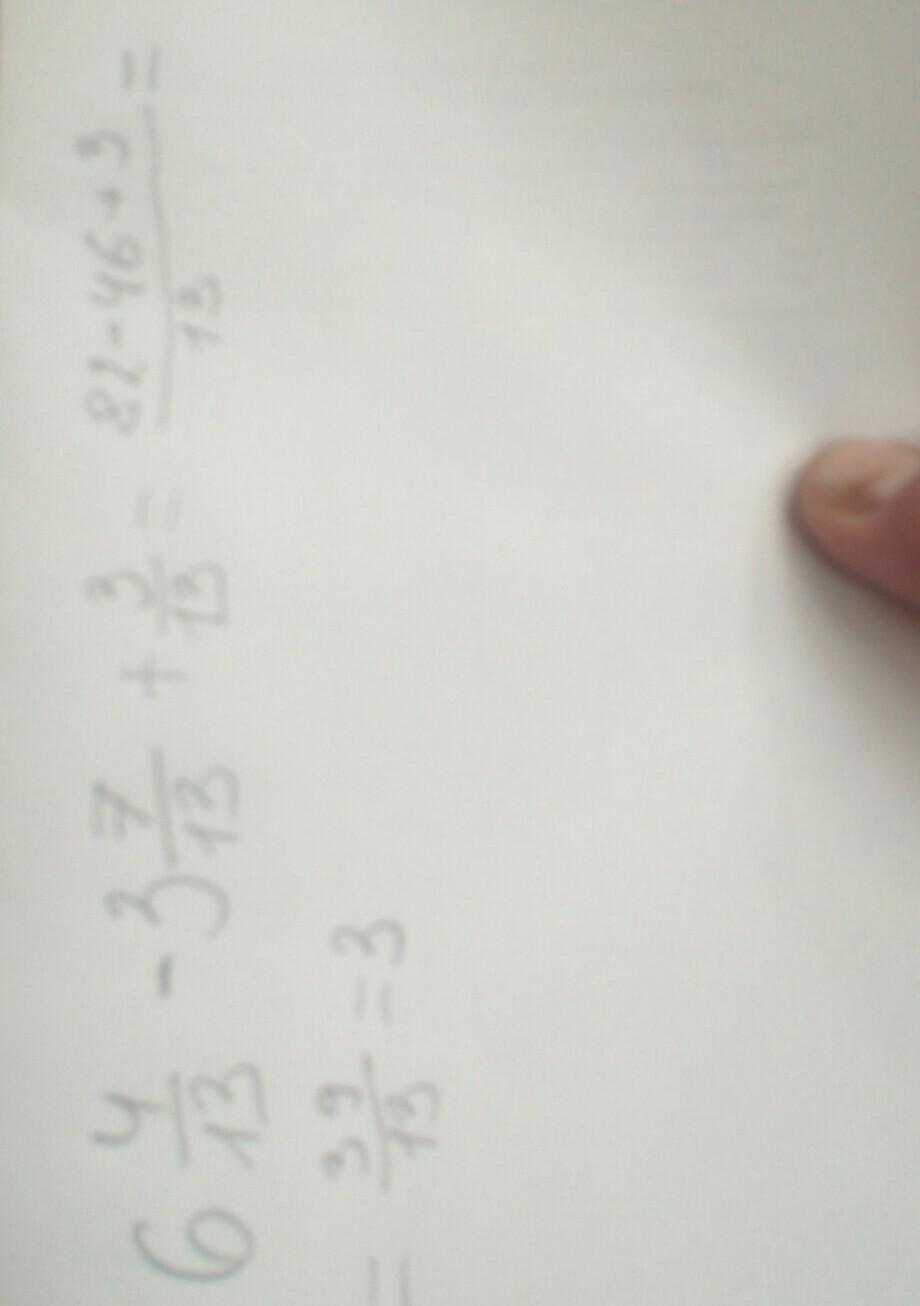 6 4/13 - 3 7/13 + 3/13 = 82-46+3/13 =
= 39/13 = 3